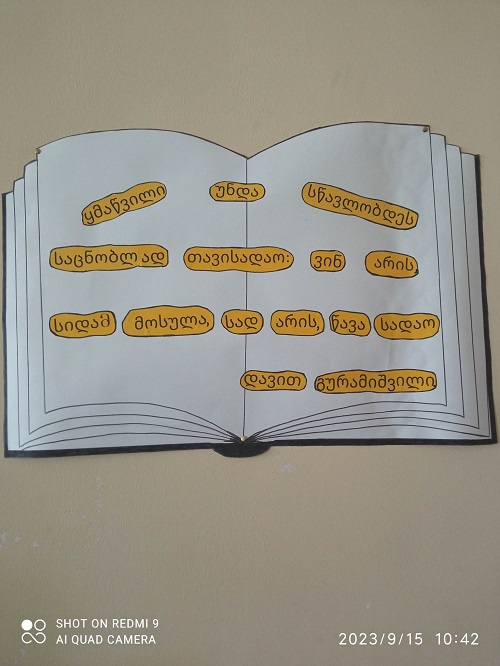 ყმაწვილი უნდა სწავლობდეს
საცნობლად თავისადაო:  ვინ არის,
სიდამ მოსულა, სად არის, წავა სადაო
დავით გურამიშვილი
SHOT ON REDMI 9
AI QUAD CAMERA
2023/9/15 10:42